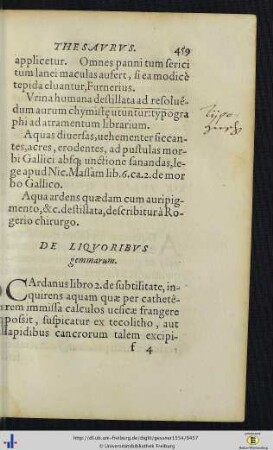 THESAVRVS. 459
applicetur. Omnes panni tum serici
tum lanei maculas aufert, si ea modicè
tepida eluantur, Furnerius.
Vrina humana destillata ad resoluẽ-
dum aurum chymistę utuntur: typogra
phi ad atramentum librarium.
Aquas diuersas, uehementer siccan-
tes, acres, erodentes, ad pustulas mor-
bi Gallici absq; unctione sanandas, le-
ge apud Nic. Massam lib. 6. ca. 2. de mor
bo Gallico.
Aqua ardens quædam cum auripig-
mento, &c. destillata, describitur à Ro-
gerio chirurgo.
DE LIQVORIBVS
gemmarum.
CArdanus libro 2. de subtilitate, in-
quirens aquam quæ per cathetê-
rem immissa calculos uesicæ frangere
possit, suspicatur ex tecolitho, aut
lapidibus cancrorum talem excipi-
f 4
http://dl.ub.uni-freiburg.de/diglit/gessner1554/0457
© Universitätsbibliothek Freiburg